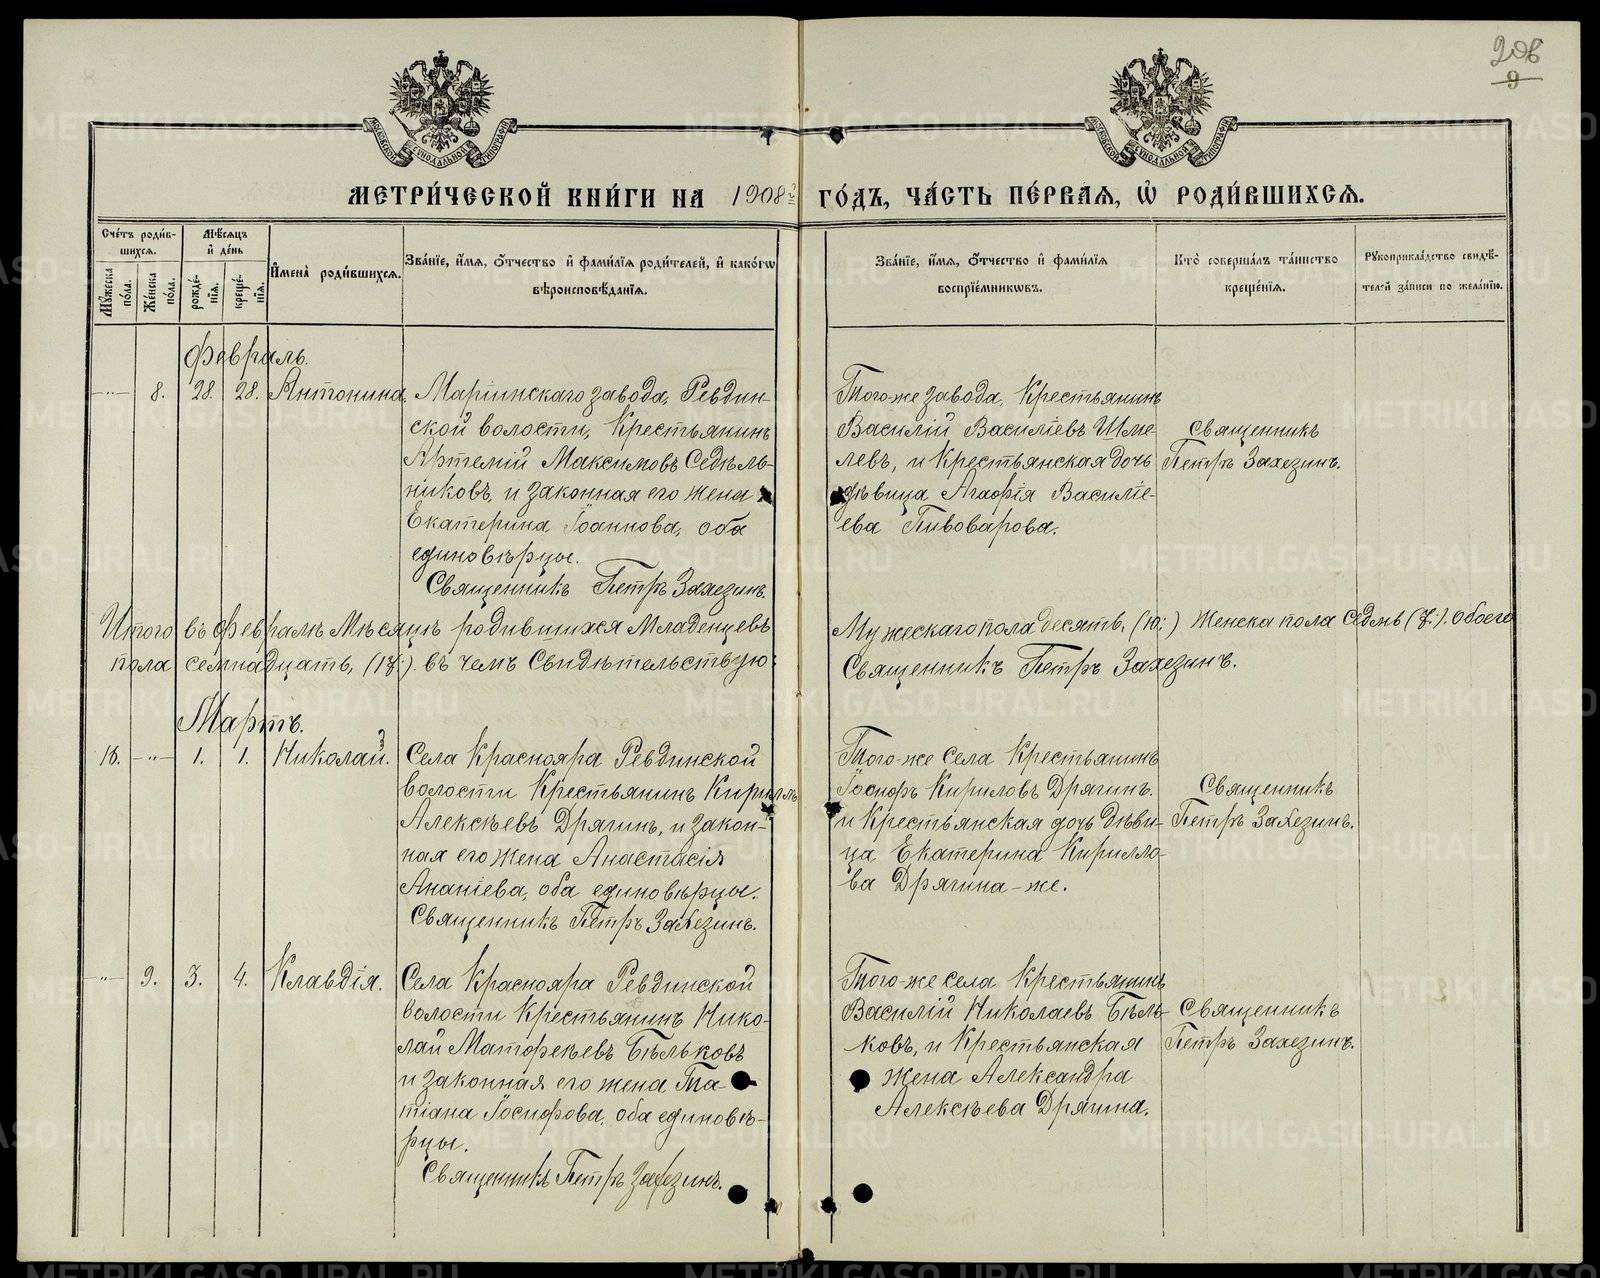 206
9
МОСКОВСКОЙ СѴНОДАЛЬНОЙ ТИПОГРАФІИ
МОСКОВСКОЙ СѴНОДАЛЬНОЙ ТИПОГРАФІИ
МЕТРИ́ЧЕСКОЙ КНИ́ГИ НА 1908й ГО́ДЪ, ЧА́СТЬ ПЕ́РВАЯ, Ѡ҆ РОДИ́ВШИХСЯ.
Сче́тъ роди́в-
шихся.
Мѣ́сяцъ
и҆ де́нь
Мꙋ́жеска
по́ла.
Же́нска
по́ла.
рожде́-
нїя.
креще́-
нїя.
И҆мена̀ роди́вшихся.
Зва́нїе, и҆́мя, ѻ҆́тчество и҆ фами́лїя роди́телей, и҆ како́гѡ
вѣроисповѣ́данїя.
Зва́нїе, и҆́мя, ѻ҆́тчество и҆ фами́лїя
воспрїе́мникѡвъ.
Кто̀ соверша́лъ та́инство
креще́нїя.
Рꙋкоприкла́дство свидѣ́-
телей за́писи по жела́нїю.
Февраль.
-"- 8. 28. 28. Антонина. Маріинскаго завода, Ревдин-
ской волости, Крестьянинъ
Артемій Максимовъ Седѣль-
никовъ, и законная его жена
Екатерина Іоаннова, оба
единовѣрцы.
Священникъ Петръ Захезинъ.
Того-же завода, Крестьянинъ
Василій Василіевъ Шме-
левъ, и Крестьянская дочь
дѣвица Агафія Василіе-
ева Пивоварова.
Священникъ
Петръ Захезинъ.
Итого въ Февралѣ Мѣсяцѣ родившихся Младенцевъ Мужескаго пола десять, (10:) Женска пола Седмь (7:). обоего
пола семнадцать, (17:). въ чемъ Свидѣтельствую: Священникъ Петръ Захезинъ.
Мартъ.
1. 1. Николай. Села Краснояра Ревдинской
волости Крестьянинъ Кириллъ
Алексѣевъ Дрягинъ, и закон-
ная его жена Анастасія
Ананіева, оба единовѣрцы.
Священникъ Петръ Захезинъ.
Того-же Села Крестьянинъ
Іосифъ Кириловъ Дрягинъ.
и Крестьянская дочь дѣви-
ца Екатерина Кирилло-
ва Дрягина-же.
Священникъ
Петръ Захезинъ.
-"- 9. 3. 4. Клавдія. Села Краснояра Ревдинской
волости Крестьянинъ Нико-
лай Матфеевъ Бѣльковъ
и законная его жена Та-
тіана Іосифова, оба единовѣ-
рцы.
Священникъ Петръ Захезинъ.
Того-же села Крестьянинъ
Василій Николаевъ Бѣль-
ковъ, и Крестьянская
жена Александра
Алексѣева Дрягина.
Священникъ
Петръ Захезинъ.
METRIKI.GASO-URAL.RU